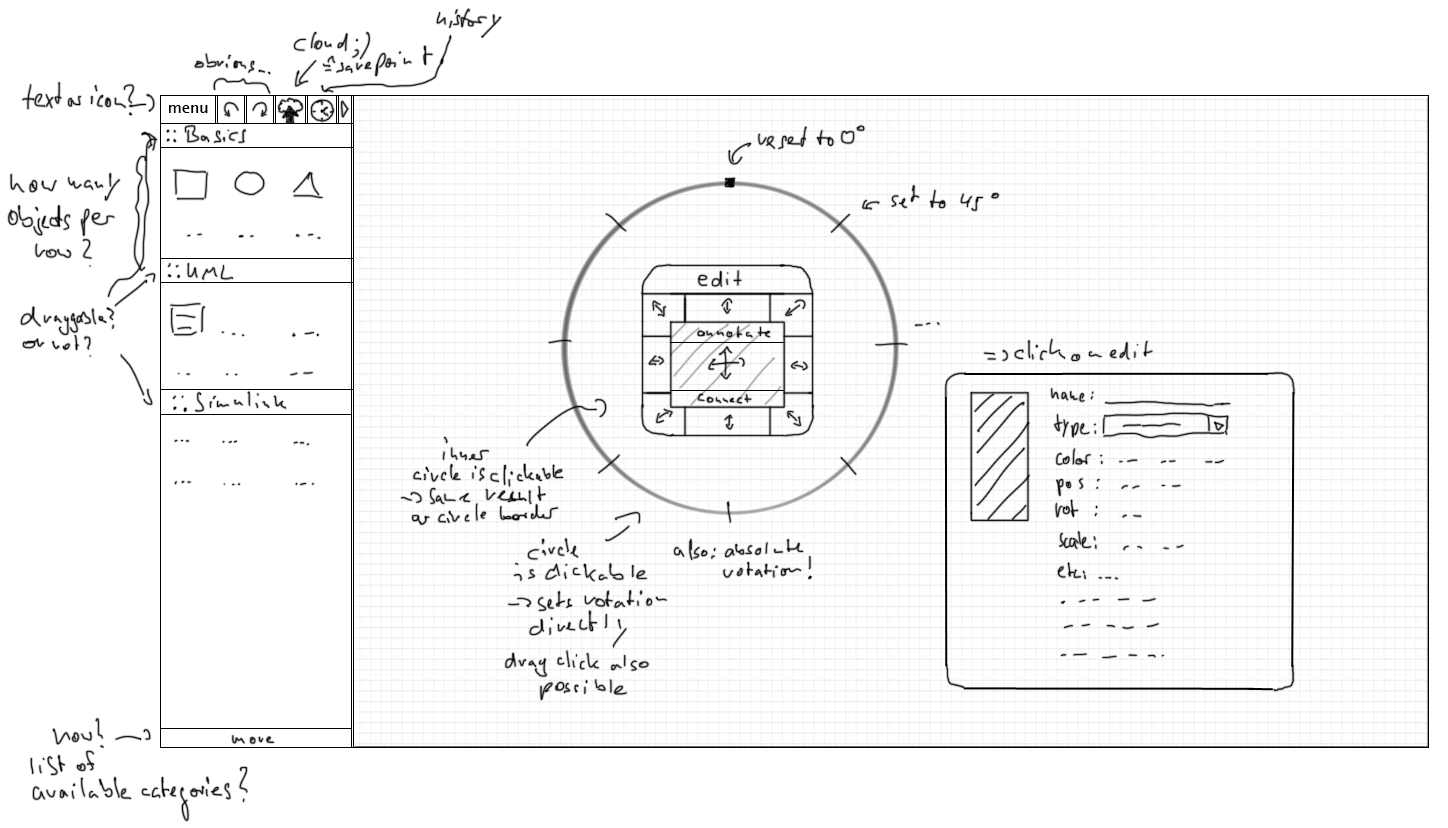 history
cloud ;)
≙ savepoint
obvious...
text as icon?
menu
:: Basics
how many
objects per
row?
:: UML
draggable?
or not?
:: Simulink
more
how?
list of
available categories?
reset to 0°
set to 45°
edit
annotate
connect
inner
circle is clickable
→ same result
as circle border
circle
is clickable
→ sets rotation
directly
drag click also
possible
also: absolute
rotation!
=> click on edit
name:
type:
color:
pos:
rot:
scale:
etc: ...